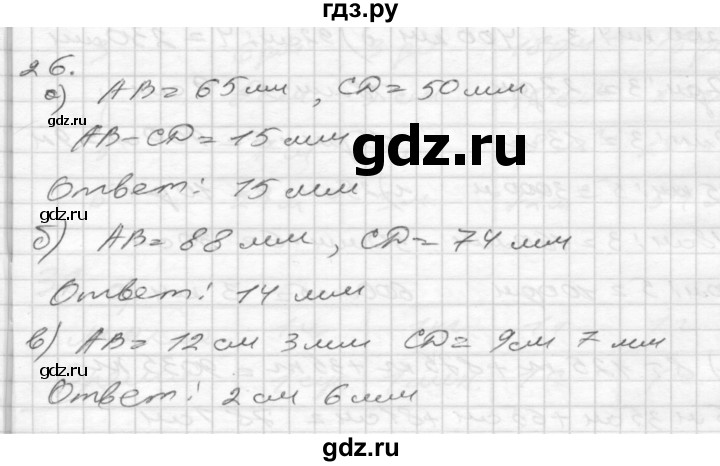 гдз.ру
26.
а) AB = 65 мм, CD = 50 мм
AB - CD = 15 мм
gdz.ru
gdz.ru
Ответ: 15 мм
б) AB = 88 мм, CD = 74 мм
Ответ: 14 мм
в) AB = 12 см 3 мм CD = 9 см 7 мм
gdz.ru
gdz.ru
Ответ: 2 см 6 мм
gdz.ru